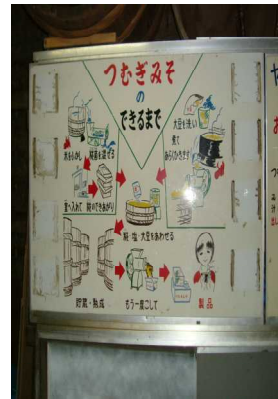 つむぎみそ
の
できるまで
大豆を洗い
煮て
あらくかきます
米をむし
麹菌を混ぜる
室へ入れて 麹のできあがり
麹・塩・大豆をあわせる
貯蔵・熟成
もう一度こして
製品